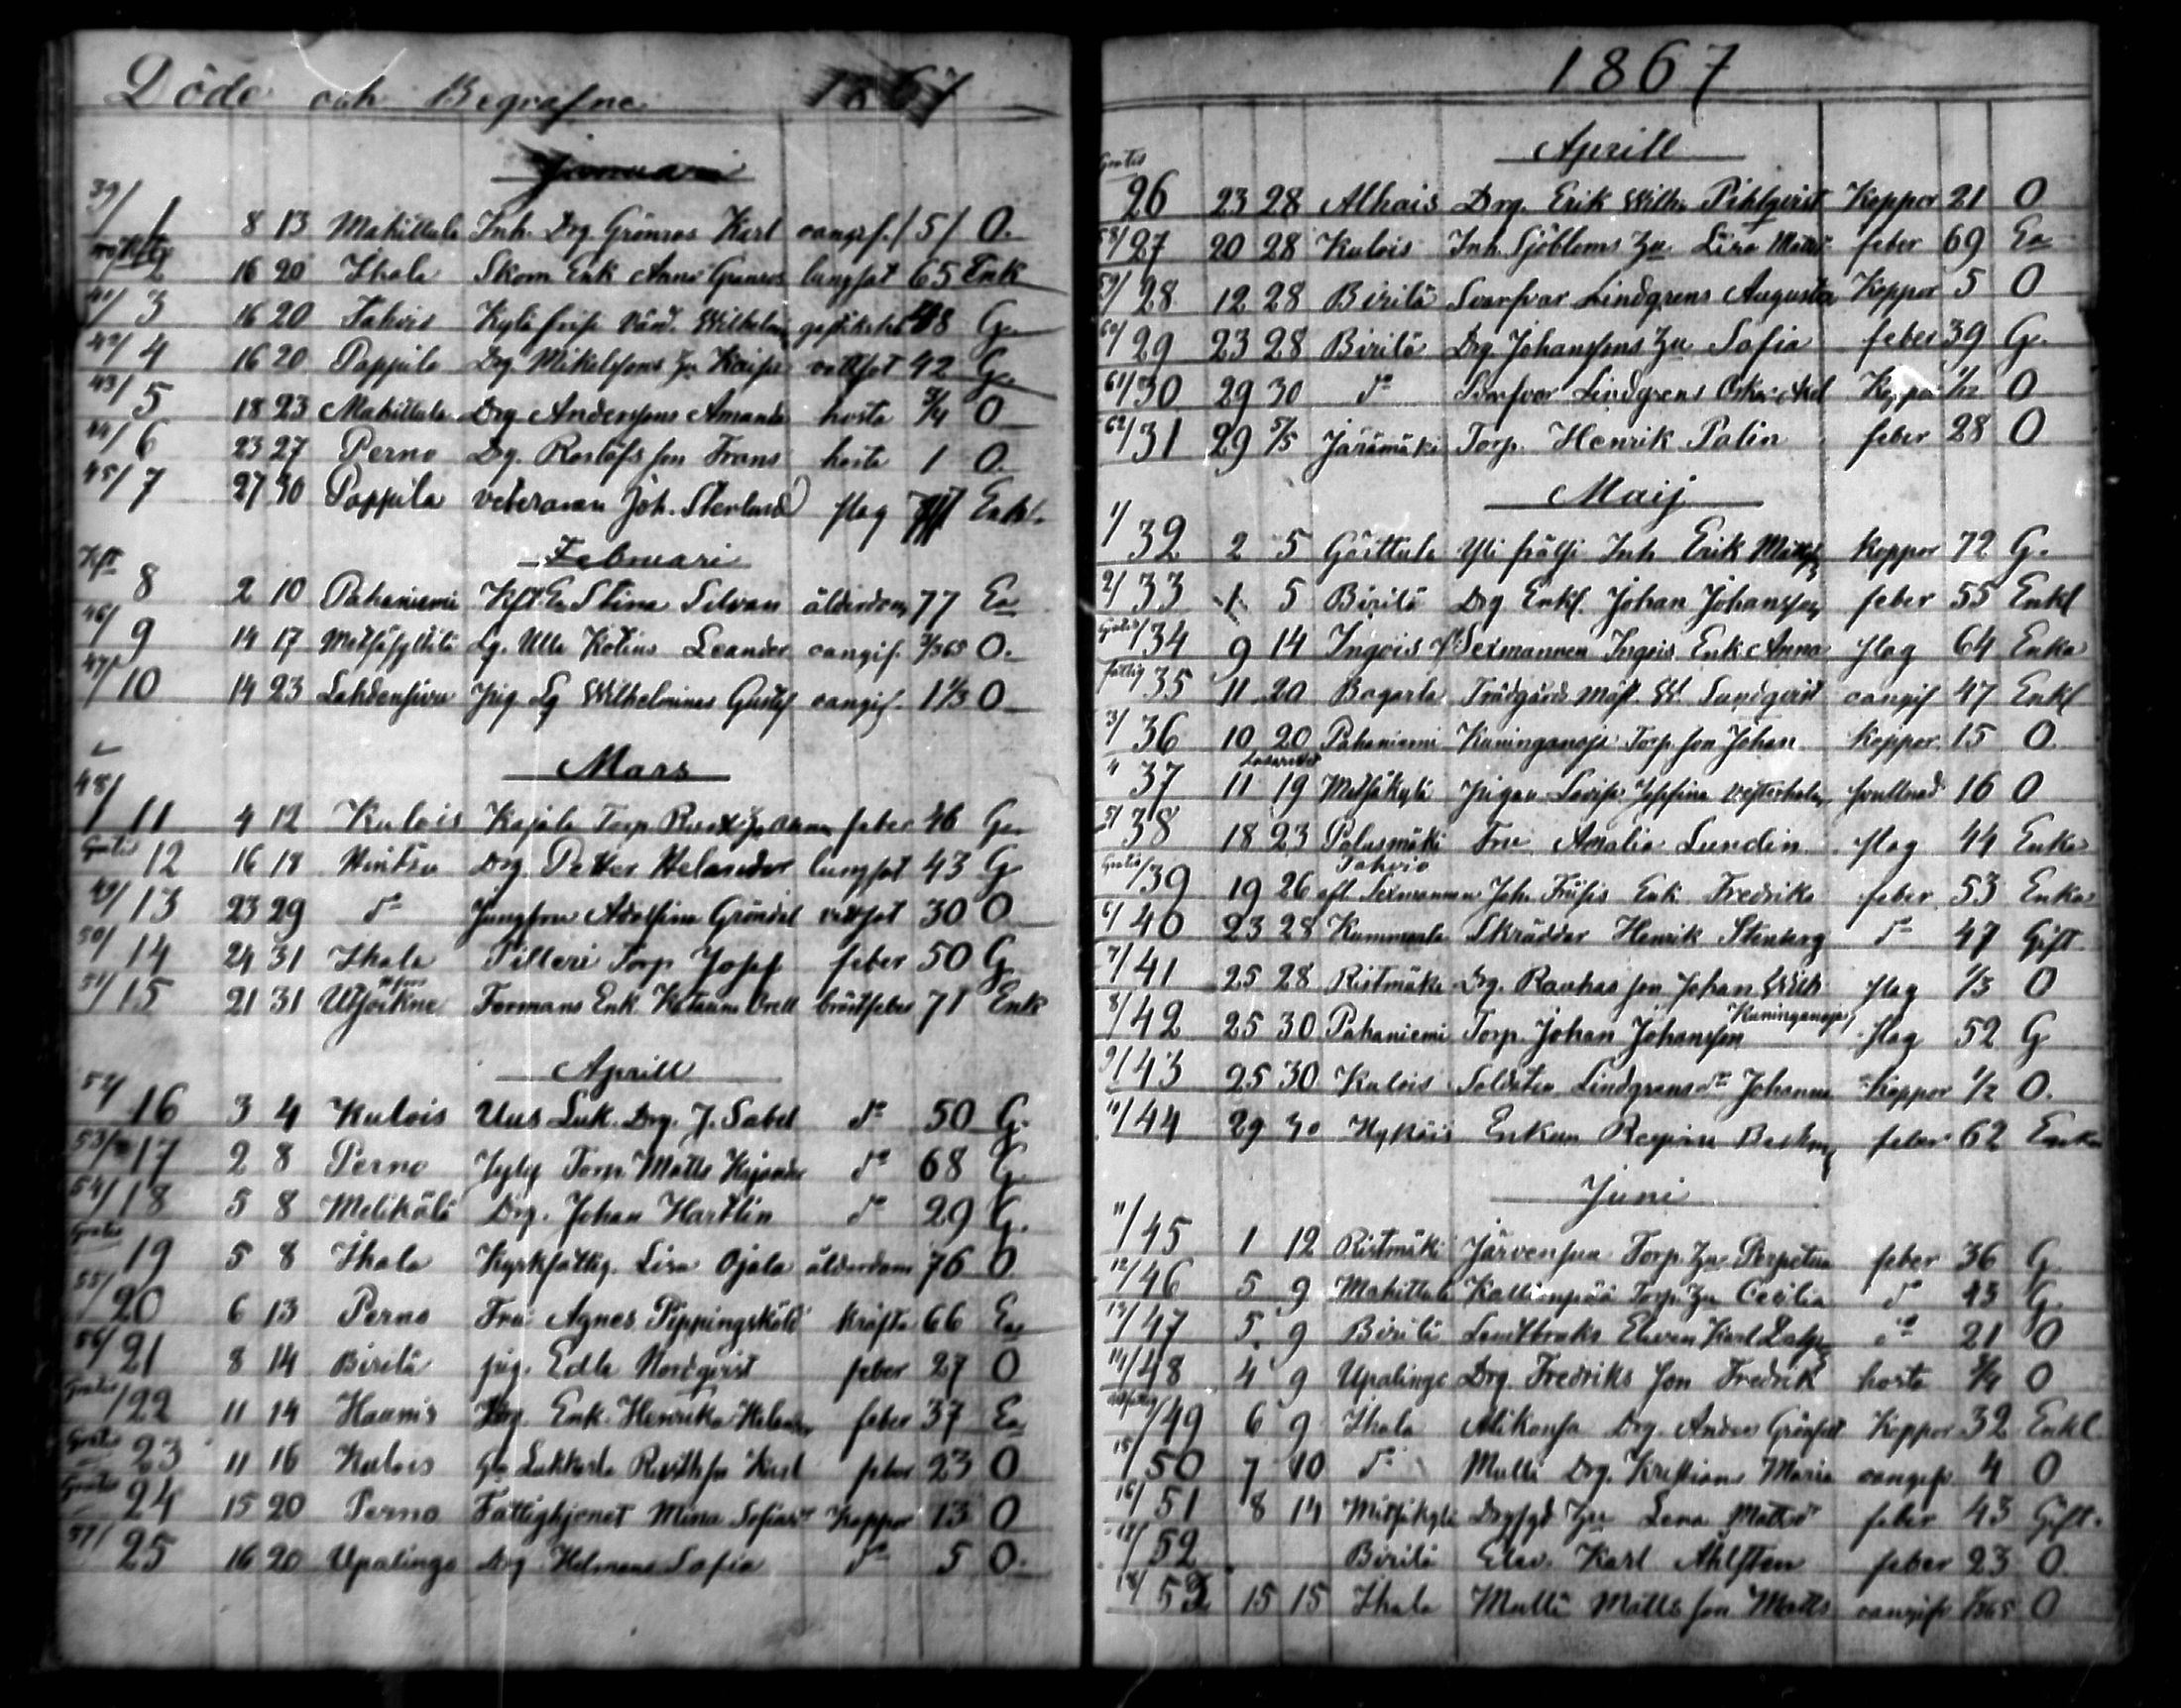 Döde och Begrafne 1867
Januari
39/ 1 8 13 Mahittula Inh. Drg Grönros Karl oangif. 5/ O.
2 16 20 Ihala Skom Enk Anna lungsot 65 Enk
41/ 3 16 20 Tahvis Kylä 48 G.
42/ 4 16 20 Pappila Drg Mikelssons Hu Kaisa vattsot 42 G.
43/ 5 18 23 Mahittula Drg Anderssons Amanda hosta 3/4 O
44/ 6 23 27 Perno Drg. Roslöfs son Frans hosta 1 O.
45/ 7 27 30 Pappila veteranen Joh. Sterlund slag Enkl.
Februari
Kfl 8 2 10 Pahaniemi Kfl. Ea Stina Silvan ålderdom 77 Ea
46/ 9 14 17 Lg. Ulla Leander oangif. 3/365 O.
47/ 10 14 23 Pig Lg Wilhelminas Gustaf oangif. 1 1/3 O
Mars
48/ 11 4 12 Kulois Kajala Torp. feber 46 G.
Gratis 12 16 18 Hintsa Drg Petter Helander lungsot 43 G
49/ 13 23 29 do Jungfru Adolfina Gröndal vattsot 30 O
50/ 14 24 31 Ihala Pilleri Torp Josef feber 50 G
51/ 15 21 31 Utsockne Formans Enk. bröstfeber 71 Enk
Aprill
52/ 16 3 4 Kulois Uus Luk. Drg. J. Sabel do 50 G.
53/ 17 2 8 Perno Torp. Matts do 68 G.
54/ 18 5 8 Melikälä Drg. Johan Hartlin do 29 G.
Gratis 19 5 8 Ihala Kyrkfattig. Lisa Ojala ålderdom 76 O
55/ 20 6 13 Perno Fru Agnes Pippingsköld kräfta 66 Ea
56/ 21 8 14 Birilä pig. Edla Nordqvist feber 27 O
Gratis/ 22 11 14 Haunis Drg. Enk. Henrika feber 37 Ea
Gratis 23 11 16 Kulois feber 23 O
Gratis 24 15 20 Perno Fattighjonet Mina Sofiasdr Koppor 13 O
57/ 25 16 20 Upalinge Drg Helmans Sofia do 5 O.
1867
Aprill
Gratis 26 23 28 Alhais Drg. Erik Wilh. Pihlqvist Koppor 21 O
58/ 27 20 28 Kulois Inh. Sjöbloms Hu Lisa Mattsdr feber 69 Ea
59/ 28 12 28 Birilä Svarfvar Lindgrens Augusta Koppor 5 O
60/ 29 23 28 Birilä Drg. Johanssons Hu Sofia feber 39 G.
61/ 30 29 30 do Svarfvar Lindgrens Oskar Axel Koppor 1/12 O
62/ 31 29 5/5 Järämäki Torp. Henrik Palin feber 28 O
Maij
1/ 32 2 5 Göittula Yli Inh Erik Mattss Koppor 72 G.
2/ 33 1 5 Birilä Drg Enkl. Johan Johansson feber 55 Enkl
Gratis/ 34 9 14 Ingois Sexmannen Ingois Enk Anna slag 64 Enka
fattig 35 11 20 Bagarla Trädgårds Mäst. W. Sundqvist oangif 47 Enkl
3/ 36 10 20 Pahaniemi Kuninganoja Torp. son Johan Koppor 15 O.
4 37 11 19 Lasarettet Metsäkylä Pigan Lovisa Josefina Westerholm svullnad 16 O
5/ 38 18 23 Palusmäki Fru Amalia Lundin slag 44 Enka
Gratis/ 39 19 26 Tahvio afl. Sexmannen Joh. Enk Fredrika feber 53 Enka
6/ 40 23 28 Kummala Skrädder Henrik Stenberg do 47 Gift
7/ 41 25 28 Ristmäki Drg. Rauhas son Johan Wilh slag 1/3 O
8/ 42 25 30 Pahaniemi Torp. Johan Johansson Kuninganoja slag 52 G
9/ 43 25 30 Kulois Soldaten Lindgrens dr Johanna Koppor 1/2 O.
10/ 44 29 30 Hyköis Enkan Regina feber 62 Enka
Juni
11/ 45 1 12 Ristmäki Järvensuu Torp. Hu Perpetua feber 36 G.
12/ 46 5 9 Mahittula Kallionpää Torp. Hu Cecilia do 43 G.
13/ 47 5 9 Birilä Landtbruks Eleven Karl do 21 O
14/ 48 4 9 Upalinge Drg. Fredriks son Fredrik hosta 3/4 O
/49 6 9 Ihala Alikonsa Drg. Anders Koppor 32 Enkl.
15/ 50 7 10 do Mulli Drg. Kristians Maria oangif 4 O
16/ 51 8 14 Metsäkylä Hu Lena Mattsdr feber 43 Gift.
17/ 52 Birilä Elev. Karl Ahlsten feber 23 O.
18/ 53 15 15 Ihala Mulli Matts son Matts oangif 1/365 O